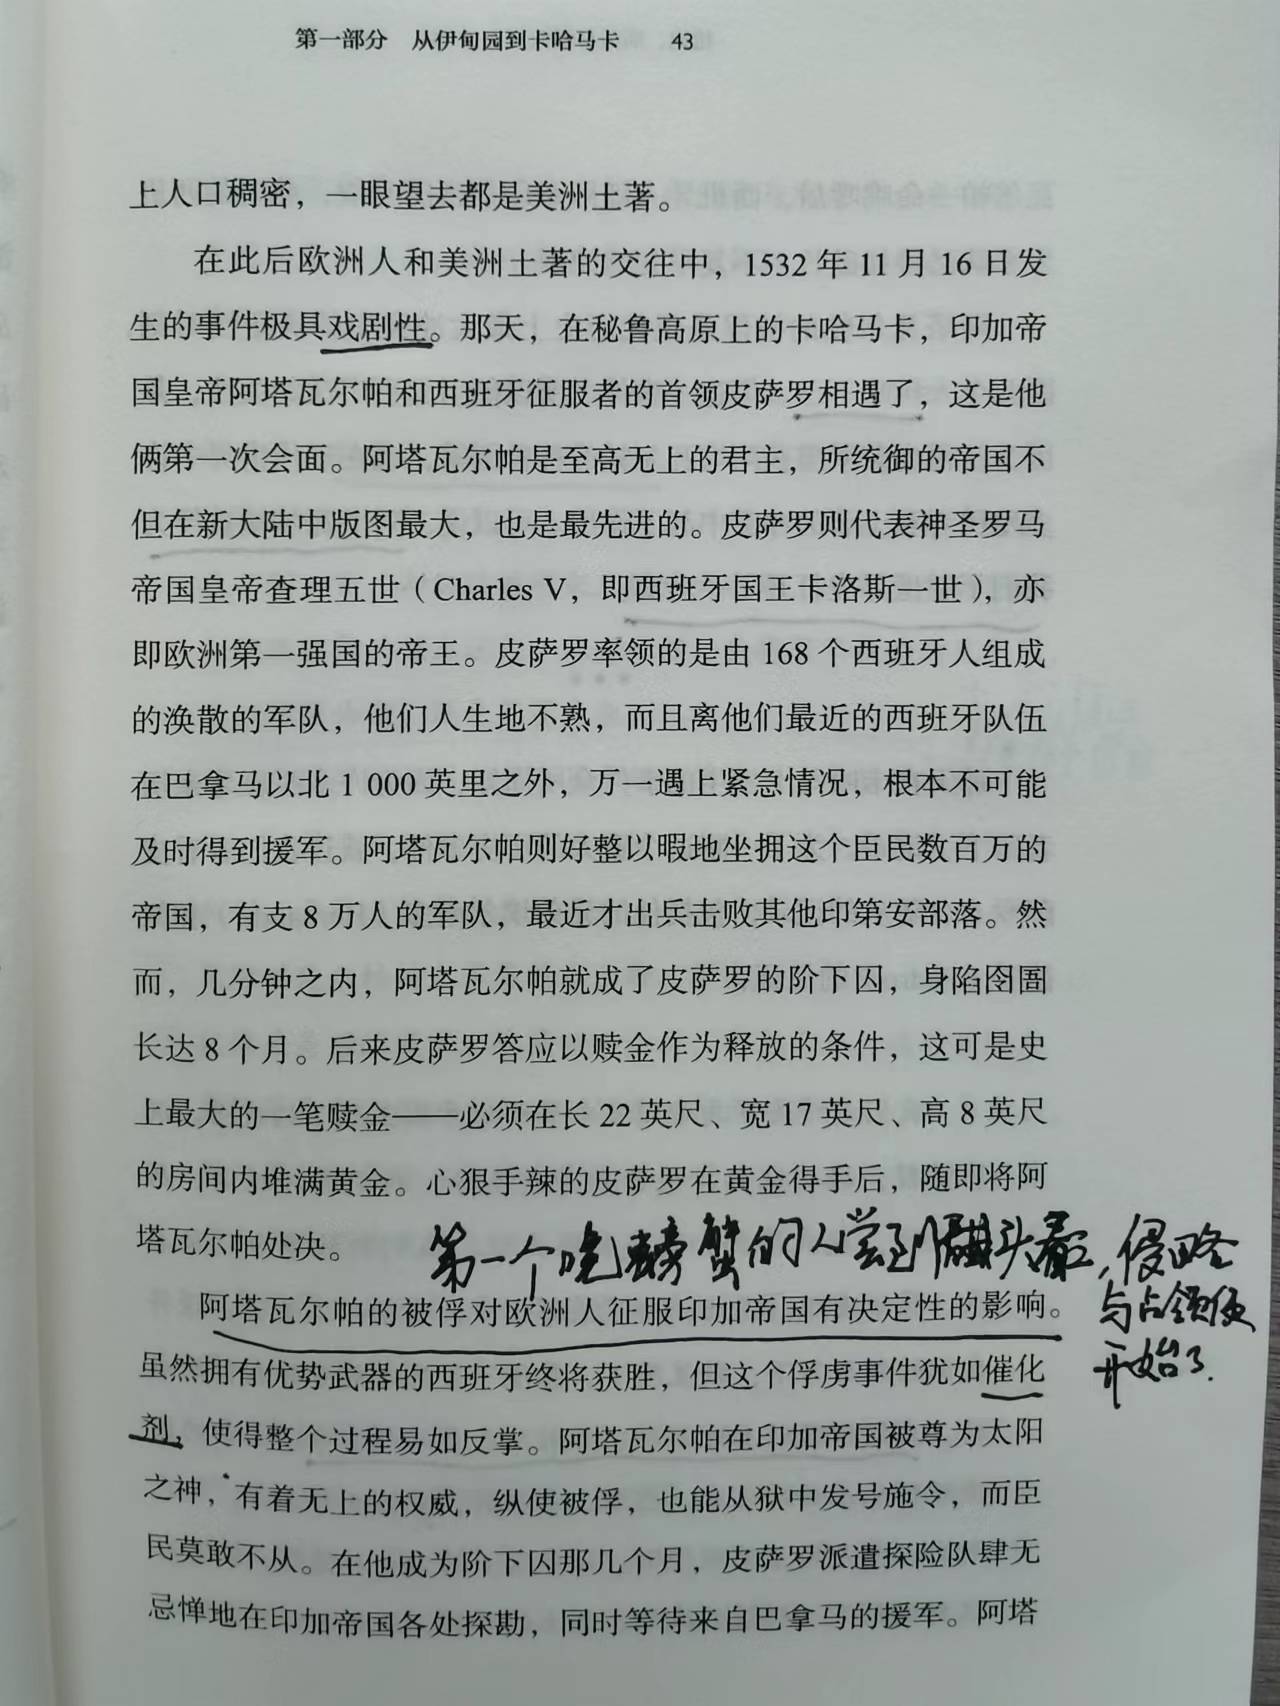 第一部分 从伊甸园到卡哈马卡 43
上人口稠密，一眼望去都是美洲土著。
在此后欧洲人和美洲土著的交往中，1532 年 11 月 16 日发
生的事件极具戏剧性。那天，在秘鲁高原上的卡哈马卡，印加帝
国皇帝阿塔瓦尔帕和西班牙征服者的首领皮萨罗相遇了，这是他
俩第一次会面。阿塔瓦尔帕是至高无上的君主，所统御的帝国不
但在新大陆中版图最大，也是最先进的。皮萨罗则代表神圣罗马
帝国皇帝查理五世（Charles V，即西班牙国王卡洛斯一世），亦
即欧洲第一强国的帝王。皮萨罗率领的是由 168 个西班牙人组成
的涣散的军队，他们人生地不熟，而且离他们最近的西班牙队伍
在巴拿马以北 1 000 英里之外，万一遇上紧急情况，根本不可能
及时得到援军。阿塔瓦尔帕则好整以暇地坐拥这个臣民数百万的
帝国，有支 8 万人的军队，最近才出兵击败其他印第安部落。然
而，几分钟之内，阿塔瓦尔帕就成了皮萨罗的阶下囚，身陷囹圄
长达 8 个月。后来皮萨罗答应以赎金作为释放的条件，这可是史
上最大的一笔赎金——必须在长 22 英尺、宽 17 英尺、高 8 英尺
的房间内堆满黄金。心狠手辣的皮萨罗在黄金得手后，随即将阿
塔瓦尔帕处决。
第一个吃螃蟹的人尝到甜头，侵略
与占领便
开始了.
阿塔瓦尔帕的被俘对欧洲人征服印加帝国有决定性的影响。
虽然拥有优势武器的西班牙终将获胜，但这个俘虏事件犹如催化
剂，使得整个过程易如反掌。阿塔瓦尔帕在印加帝国被尊为太阳
之神，有着无上的权威，纵使被俘，也能从狱中发号施令，而臣
民莫敢不从。在他成为阶下囚那几个月，皮萨罗派遣探险队肆无
忌惮地在印加帝国各处探勘，同时等待来自巴拿马的援军。阿塔